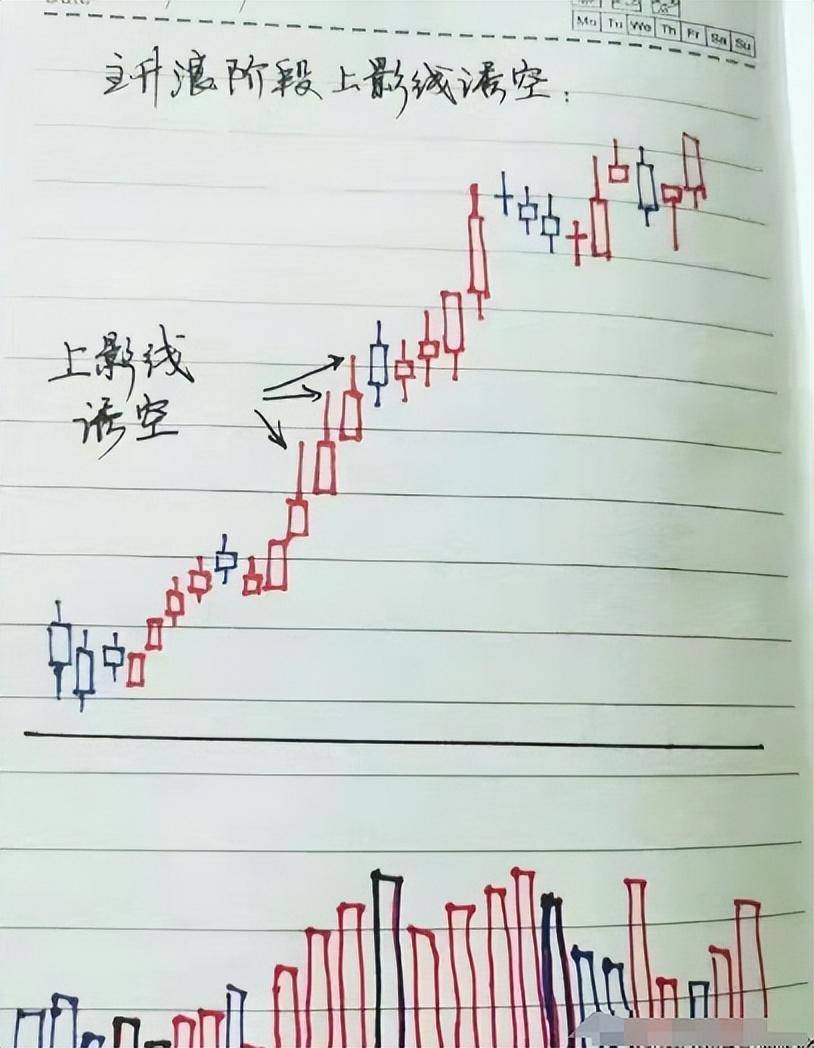 Mo Tu We Th Fr Sa Su
主升浪阶段上影线诱空：
上影线
诱空